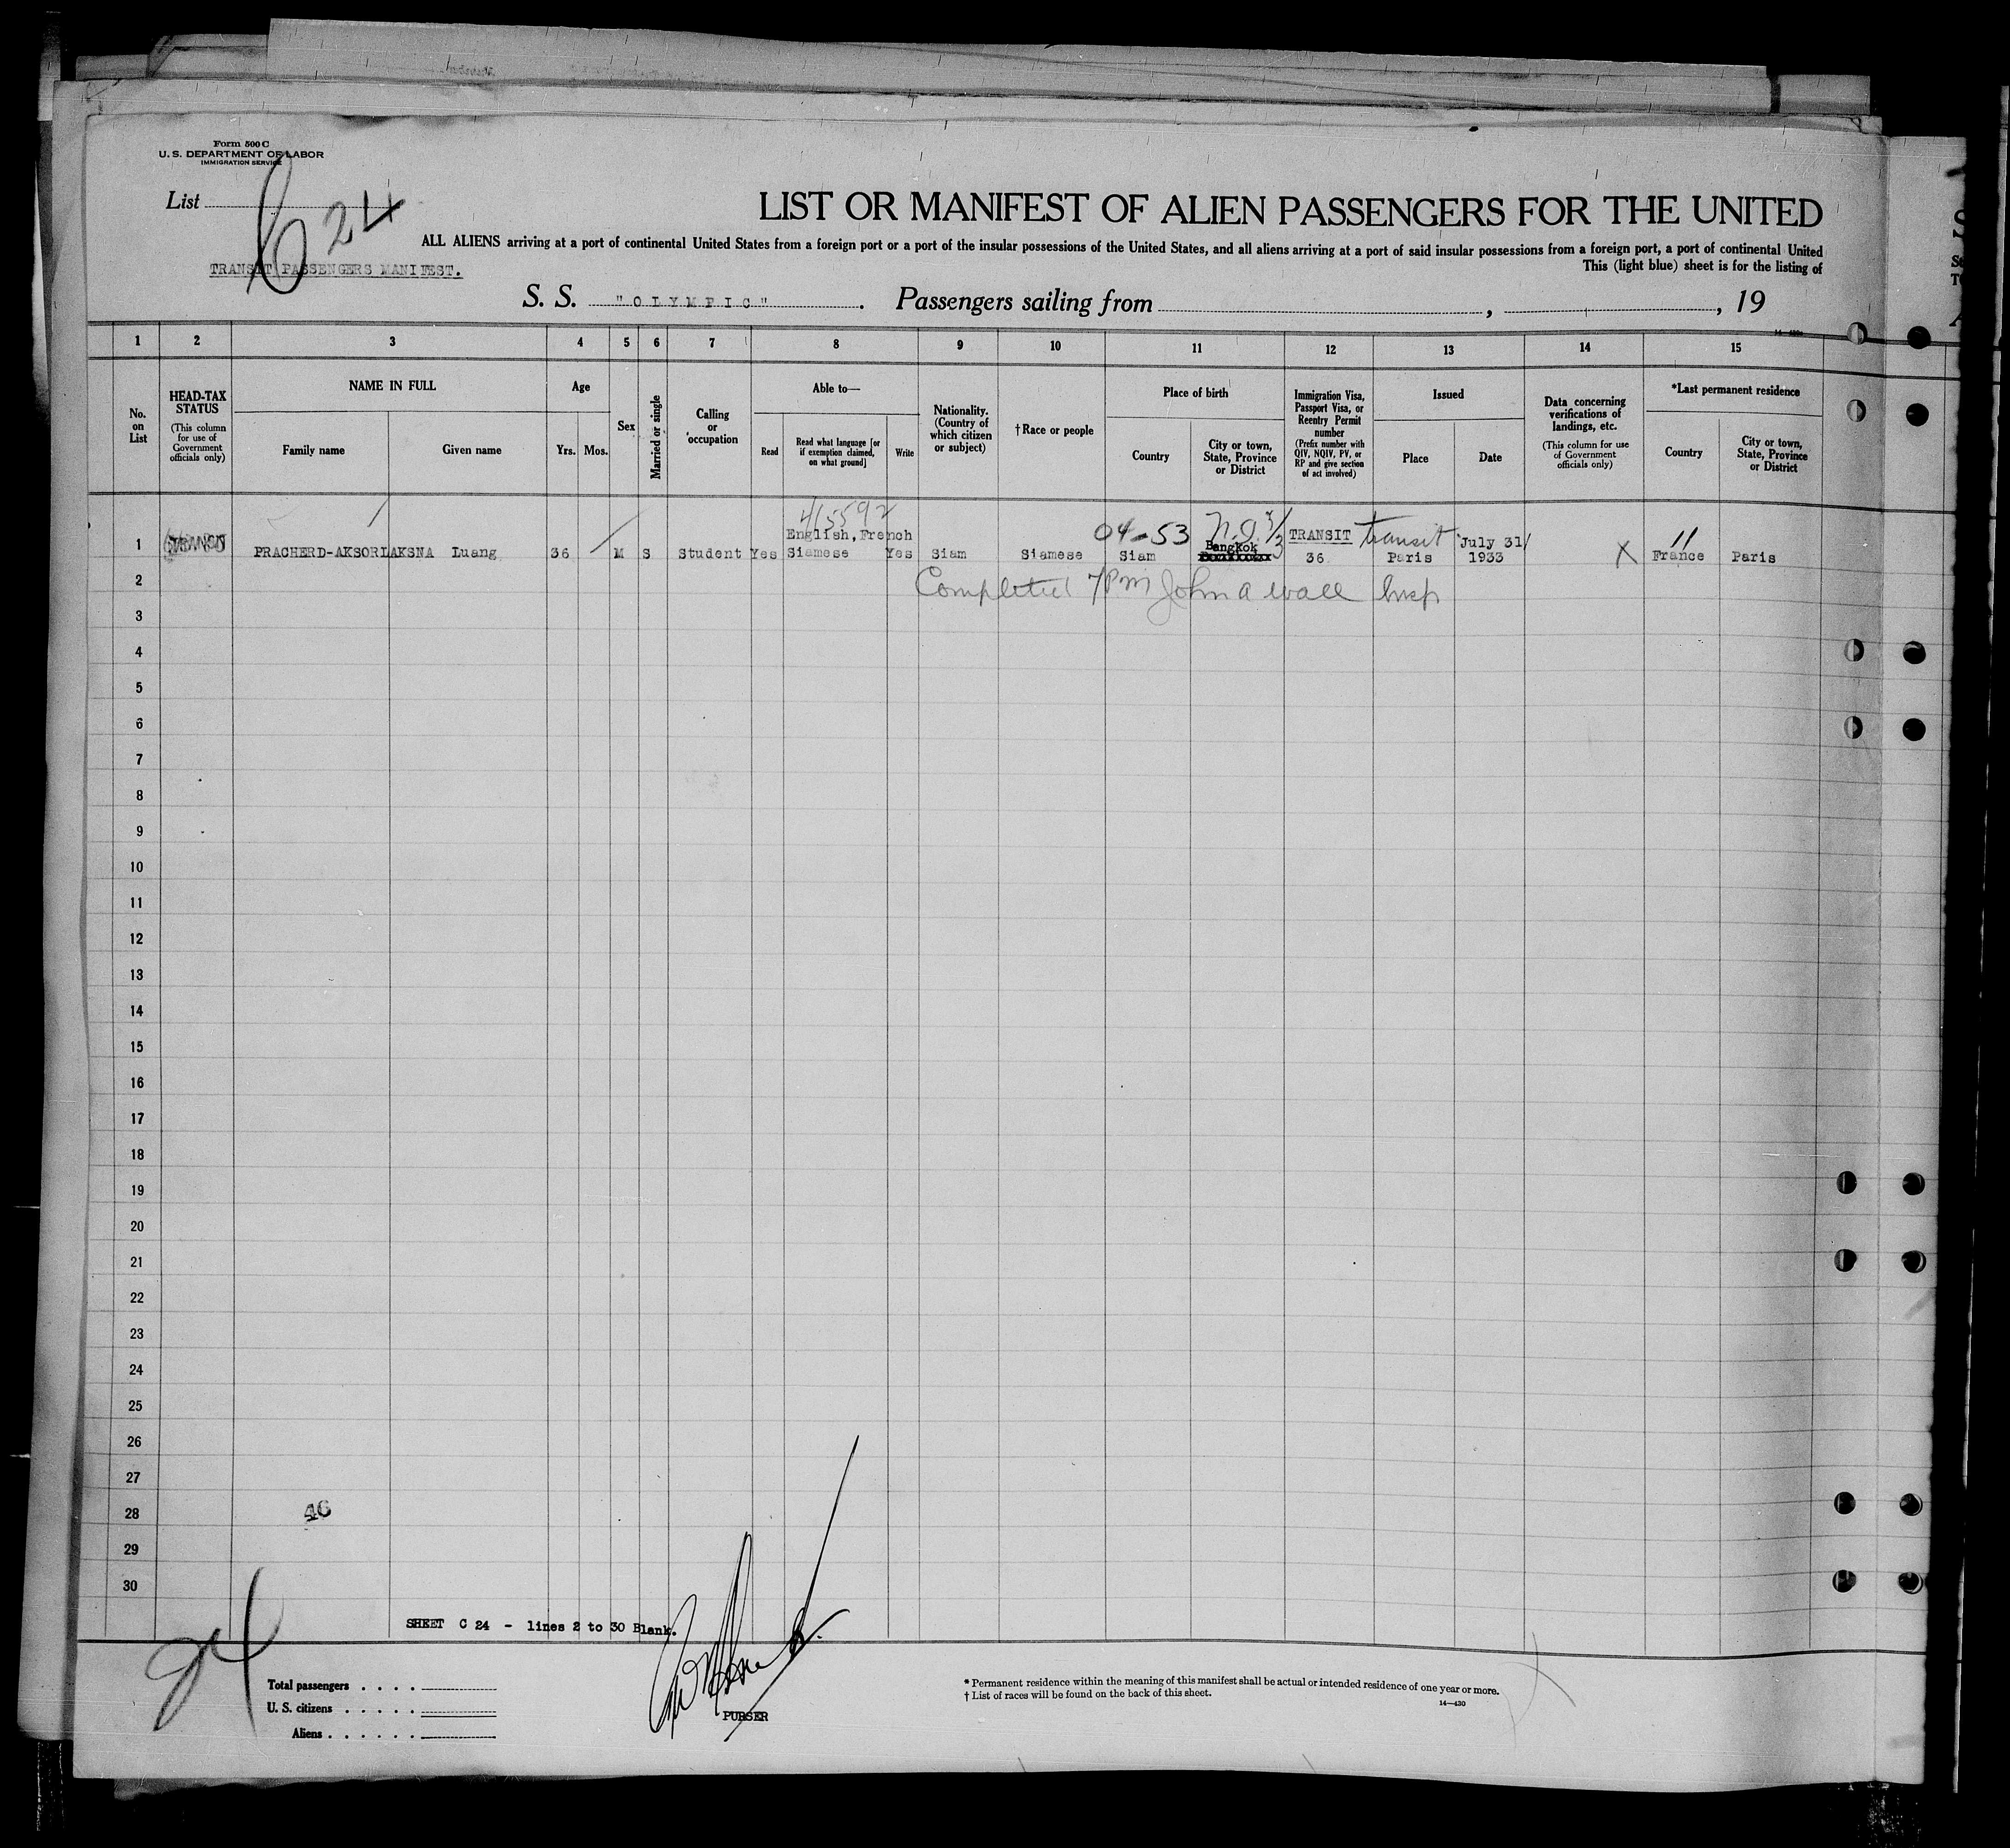 Form 500 C
U. S. DEPARTMENT OF LABOR
IMMIGRATION SERVICE
List
C 24
TRANSIT PASSENGERS MANIFEST.
LIST OR MANIFEST OF ALIEN PASSENGERS FOR THE UNITED
ALL ALIENS arriving at a port of continental United States from a foreign port or a port of the insular possessions of the United States, and all aliens arriving at a port of said insular possessions from a foreign port, a port of continental United
This (light blue) sheet is for the listing of
S. S. "OLYMPIC". Passengers sailing from , , 19
1 2 3 4 5 6 7 8 9 10 11 12 13 14 15
No. on List
HEAD-TAX STATUS
(This column for use of Government officials only)
NAME IN FULL
Family name Given name
Age
Yrs. Mos.
Sex
Married or single
Calling or occupation
Able to—
Read
Read what language [or if exemption claimed, on what ground]
Write
Nationality. (Country of which citizen or subject)
†Race or people
Place of birth
Country
City or town, State, Province or District
Immigration Visa, Passport Visa, or Reentry Permit number
(Prefix number with QIV, NQIV, PV, or RP and give section of act involved)
Issued
Place Date
Data concerning verifications of landings, etc.
(This column for use of Government officials only)
*Last permanent residence
Country
City or town, State, Province or District
415592
04-53
1 TRANSIT PRACHERD-AKSORLAKSNA Luang 36 M S Student Yes English, French Siamese Yes Siam Siamese Siam Bangkok TRANSIT 36 transit Paris July 31/ 1933 X 11 France Paris
2 Completed 7PM John A Wall Insp
3
4
5
6
7
8
9
10
11
12
13
14
15
16
17
18
19
20
21
22
23
24
25
26
27
28 46
29
30
SHEET C 24 - lines 2 to 30 Blank.
24
Total passengers
U. S. citizens
Aliens
PURSER
* Permanent residence within the meaning of this manifest shall be actual or intended residence of one year or more.
† List of races will be found on the back of this sheet.
14—430